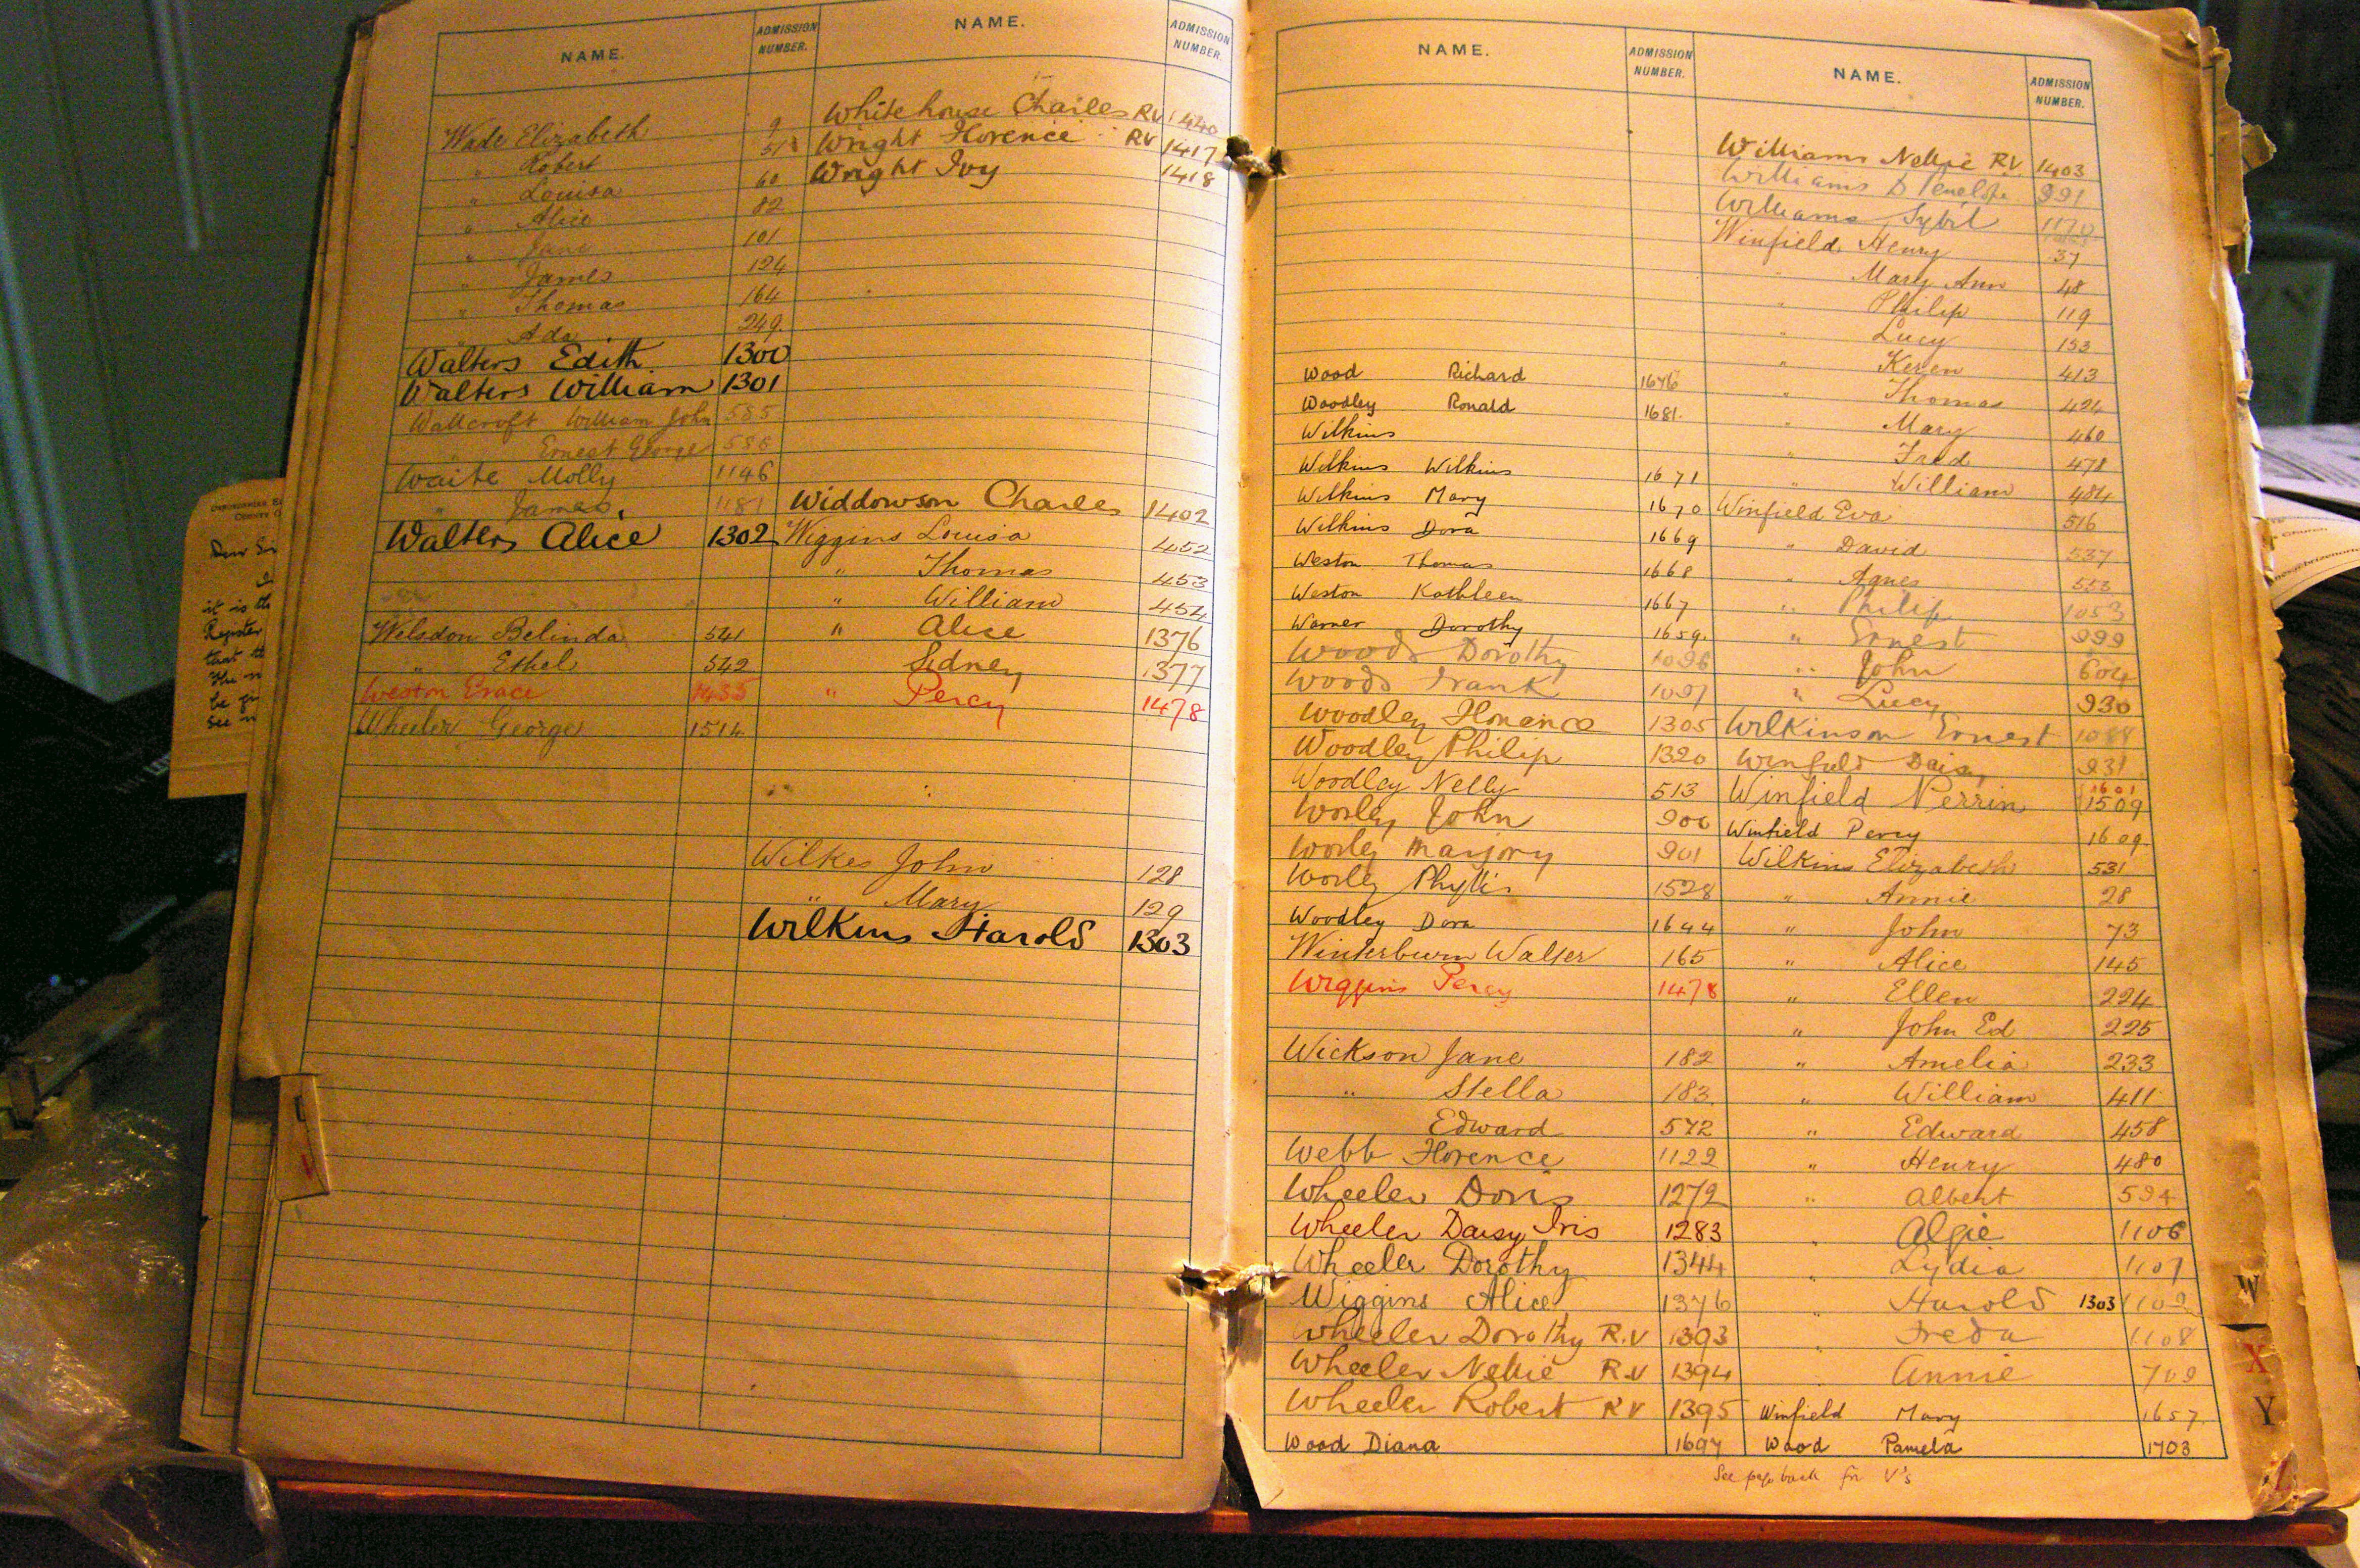 NAME.
ADMISSION NUMBER.
Wade Elizabeth 9
" Robert 51
" Louisa 60
" Alice 82
" Jane 101
" James 124
" Thomas 164
" Ada 249
Walters Edith 1300
Walters William 1301
Wallcroft William John 585
" Ernest George 586
Waite Molly 1146
" James 1181
Walters Alice 1302
Welsdon Belinda 541
" Ethel 542
Weston Grace 1435
Wheeler George 1514
NAME.
ADMISSION NUMBER.
Whitehouse Charles RV 1440
Wright Florence RV 1417
Wright Ivy 1418
Widdowson Charles 1402
Wiggins Louisa 452
" Thomas 453
" William 454
" Alice 1376
Sidney 1377
" Percy 1478
Wilkes John 128
" Mary 129
Wilkins Harold 1303
NAME.
ADMISSION NUMBER.
Wood Richard 1676
Woodley Ronald 1681.
Wilkins
Wilkins Wilkins 1671
Wilkins Mary 1670
Wilkins Dora 1669
Weston Thomas 1668
Weston Kathleen 1667
Warner Dorothy 1659.
Woods Dorothy 1096
Woods Frank 1097
Woodley Florance 1305
Woodley Philip 1320
Woodley Nelly 513
Worley John 900
Worley Marjory 901
Worley Phyllis 1528
Woodley Dora 1644
Winterburn Walter 165
Wiggins Percy 1478
Wickson Jane 182
" Stella 183.
Edward 572
Webb Florence 1122
Wheeler Doris 1272
Wheeler Daisy Iris 1283
Wheeler Dorothy 1344
Wiggins Alice 1376
Wheeler Dorothy R.V 1393
Wheeler Nellie R.V 1394
Wheeler Robert RV 1395
Wood Diana 1697
NAME.
ADMISSION NUMBER.
Williams Nellie RV. 1403
Williams D Penelope 991
Williams Sybil 1170
Winfield Henry 37
" Mary Ann 48
" Philip 119
" Lucy 153
" Keren 413
" Thomas 424
" Mary 460
" Fred 478
" William 484
Winfield Eva 516
" David 537
" Agnes 553
" Philip 1053
" Ernest 999
" John 604
" Lucy 930
Wilkinson Ernest 1088
Winfield Daisy 931
Winfield Perrin 1601 1509
Winfield Percy 1609.
Wilkins Elizabeth 531
" Annie 28
" John 73
" Alice 145
" Ellen 224
" John Ed 225
" Amelia 233
" William 411
" Edward 458
" Henry 480
" Albert 594
" Algie 1106
" Lydia 1107
" Harold 1303 1109
" Freda 1108
Annie 709
Winfield Mary 1657.
Wood Pamela 1703
See page back for V's
W
X
Y